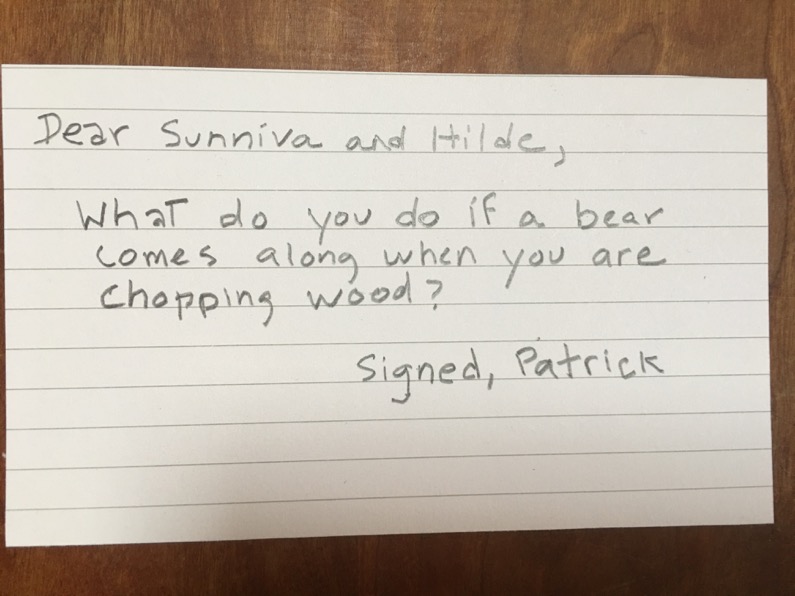 Dear Sunniva and Hilde,
What do you do if a bear
comes along when you are
chopping wood?
Signed, Patrick